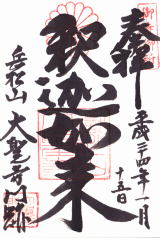 奉拝
平成二四年十一月
十五日
釈迦如来
岳松山
大聖寺門跡